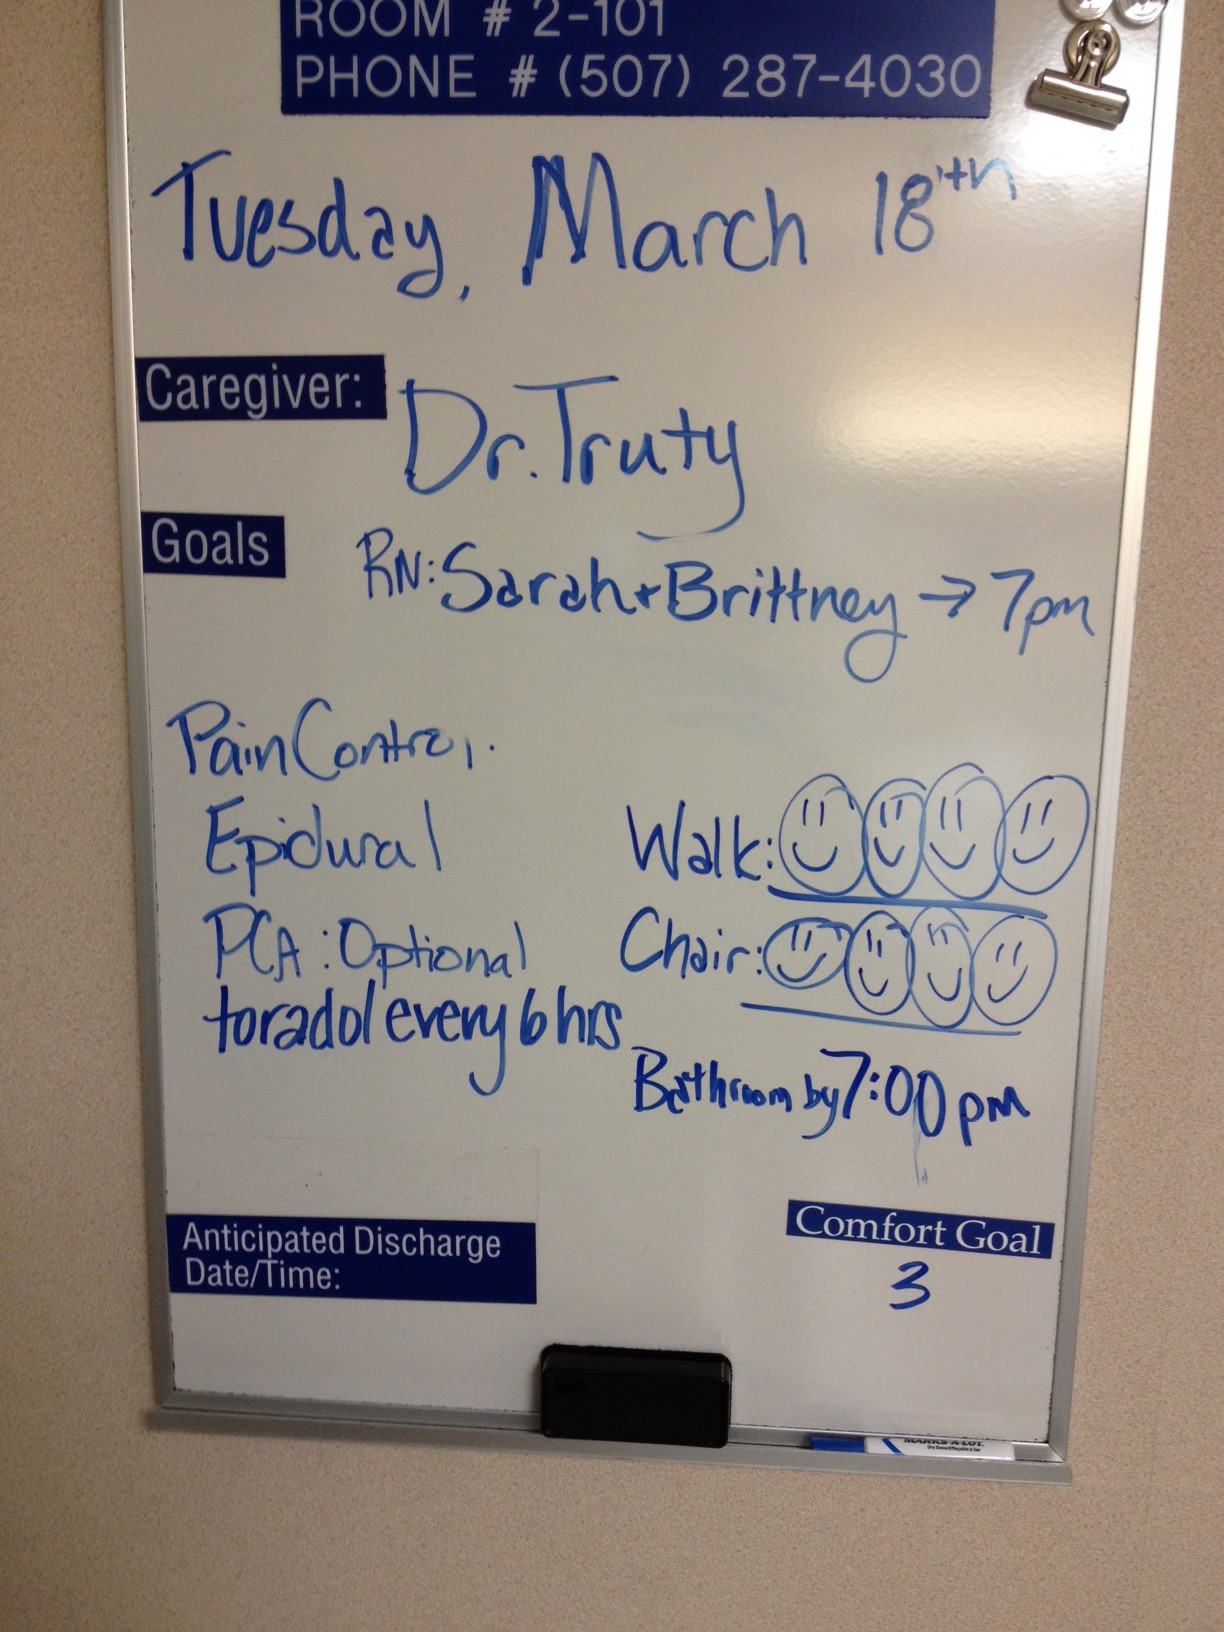 ROOM # 2-101
PHONE # (507) 287-4030
Tuesday, March 18'th
Caregiver: Dr. Truty
Goals
RN: Sarah + Brittney → 7pm
Pain Control.
Epidural
PCA : Optional
toradol every 6 hrs
Walk:
Chair:
Bathroom by 7:00 pm
Anticipated Discharge
Date/Time:
Comfort Goal
3
MARKS-A-LOT